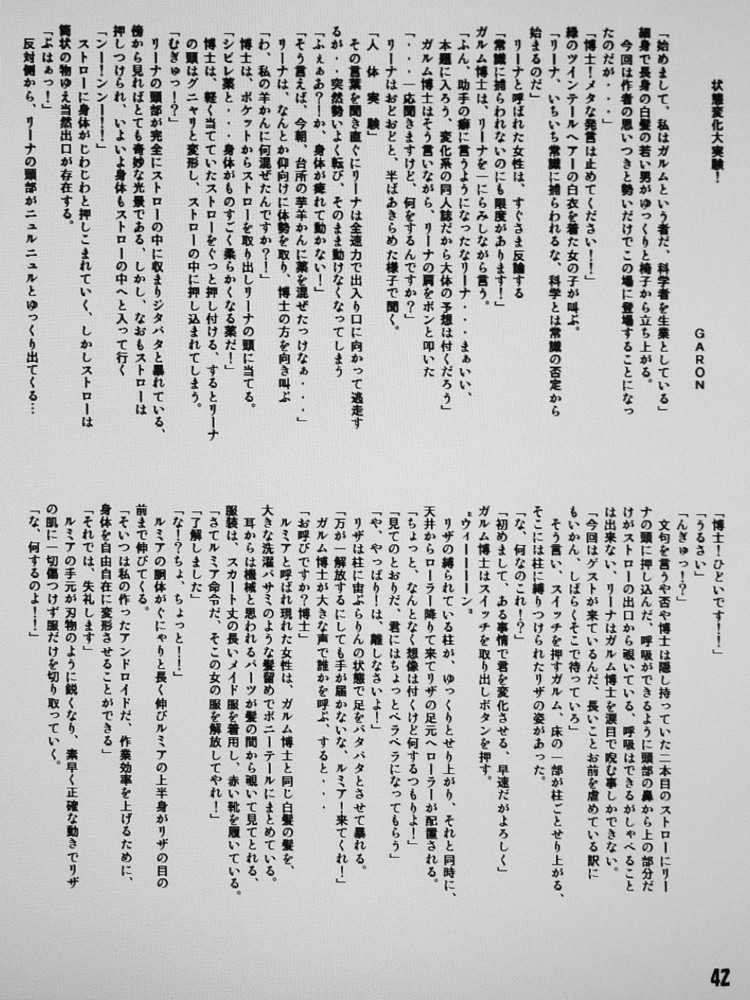 状態変化大実験！
GARON
「始めまして、私はガルムという者だ、科学者を生業としている」
細身で長身の白髪の若い男がゆっくりと椅子から立ち上がる。
今回は作者の思いつきと勢いだけでこの場に登場することになっ
たのだが・・・」
「博士！メタな発言は止めてください！！」
緑のツインテールヘアーの白衣を着た女の子が叫ぶ。
「リーナ、いちいち常識に捕らわれるな、科学とは常識の否定から
始まるのだ」
リーナと呼ばれた女性は、すぐさま反論する
「常識に捕らわれないのにも限度があります！」
ガルム博士は、リーナを一にらみしながら言う。
「ふん、助手の癖に言うようになったなリーナ・・・まぁいい、
本題に入ろう、変化系の同人誌だから大体の予想は付くだろう」
ガルム博士はそう言いながら、リーナの肩をポンと叩いた
「・・・一応聞きますけど、何をするんですか？」
リーナはおどおどと、半ばあきらめた様子で聞く。
「人 体 実 験」
その言葉を聞き直ぐにリーナは全速力で出入り口に向かって逃走す
るが・・突然勢いよく転び、そのまま動けなくなってしまう
「ふぇぁあ？！か、身体が痺れて動かない！」
「そう言えば、今朝、台所の芋羊かんに薬を混ぜたっけなぁ・・・」
リーナは、なんとか仰向けに体勢を取り、博士の方を向き叫ぶ
「わ、私の羊かんに何混ぜたんですか？！」
博士は、ポケットからストローを取り出しリーナの頭に当てる。
「シビレ薬と・・・身体がものすごく柔らかくなる薬だ！」
博士は、軽く当てていたストローをぐっと押し付ける、するとリーナ
の頭はグニャリと変形し、ストローの中に押し込まれてしまう。
「むぎゅっ！？」
リーナの頭部が完全にストローの中に収まりジタバタと暴れている、
傍から見ればとても奇妙な光景である、しかし、なおもストローは
押しつけられ、いよいよ身体もストローの中へと入って行く
「ンー！ンンー！！」
ストローに身体がじわじわと押しこまれていく、しかしストローは
筒状の物ゆえ当然出口が存在する。
「ぷはぁっ！」
反対側から、リーナの頭部がニュルニュルとゆっくり出てくる…
「博士！ひどいです！！！」
「うるさい」
「んぎゅっ！？」
文句を言うや否や博士は隠し持っていた二本目のストローにリー
ナの頭に押し込んだ、呼吸ができるように頭部の鼻から上の部分だ
けがストローの出口から覗いている、呼吸はできるがしゃべること
は出来ない、リーナはガルム博士を涙目で睨む事しかできない。
「今回はゲストが来ているんだ、長いことお前を虐めている訳に
もいかん、しばらくそこで待っていろ」
そう言い、スイッチを押すガルム、床の一部が柱ごとせり上がる、
そこには柱に縛りつけられたリザの姿があった。
「な、何なのこれ！？」
「初めまして、ある事情で君を変化させる、早速だがよろしく」
ガルム博士はスイッチを取り出しボタンを押す。
〝ウィーーーーン〟
リザの縛られている柱が、ゆっくりとせり上がり、それと同時に、
天井からローラー降りて来てリザの足元へローラーが配置される。
「ちょっと、なんとなく想像は付くけど何するつもりよ！」
「見てのとおりだ、君にはちょっとペラペラになってもらう」
「や、やっぱり！は、離しなさいよ！」
リザは柱に宙ぶらりんの状態で足をバタバタとさせて暴れる。
「万が一解放するにしても手が届かないな、ルミア！来てくれ！」
ガルム博士が大きな声で誰かを呼ぶ、すると・・・
「お呼びですか？博士」
ルミアと呼ばれ現れた女性は、ガルム博士と同じ白髪の髪を、
大きな洗濯バサミのような髪留めでポニーテールにまとめている。
耳からは機械と思われるパーツが髪の間から覗いて見てとれる、
服装は、スカート丈の長いメイド服を着用し、赤い靴を履いている。
「さてルミア命令だ、そこの女の服を解放してやれ！」
「了解しました」
「な！？ちょ、ちょっと！！」
ルミアの胴体がぐにゃりと長く伸びルミアの上半身がリザの目の
前まで伸びてくる。
「そいつは私の作ったアンドロイドだ、作業効率を上げるために、
身体を自由自在に変形させることができる」
「それでは、失礼します」
ルミアの手元が刃物のように鋭くなり、素早く正確な動きでリザ
の肌に一切傷つけず服だけを切り取っていく。
「な、何するのよ！！」
42